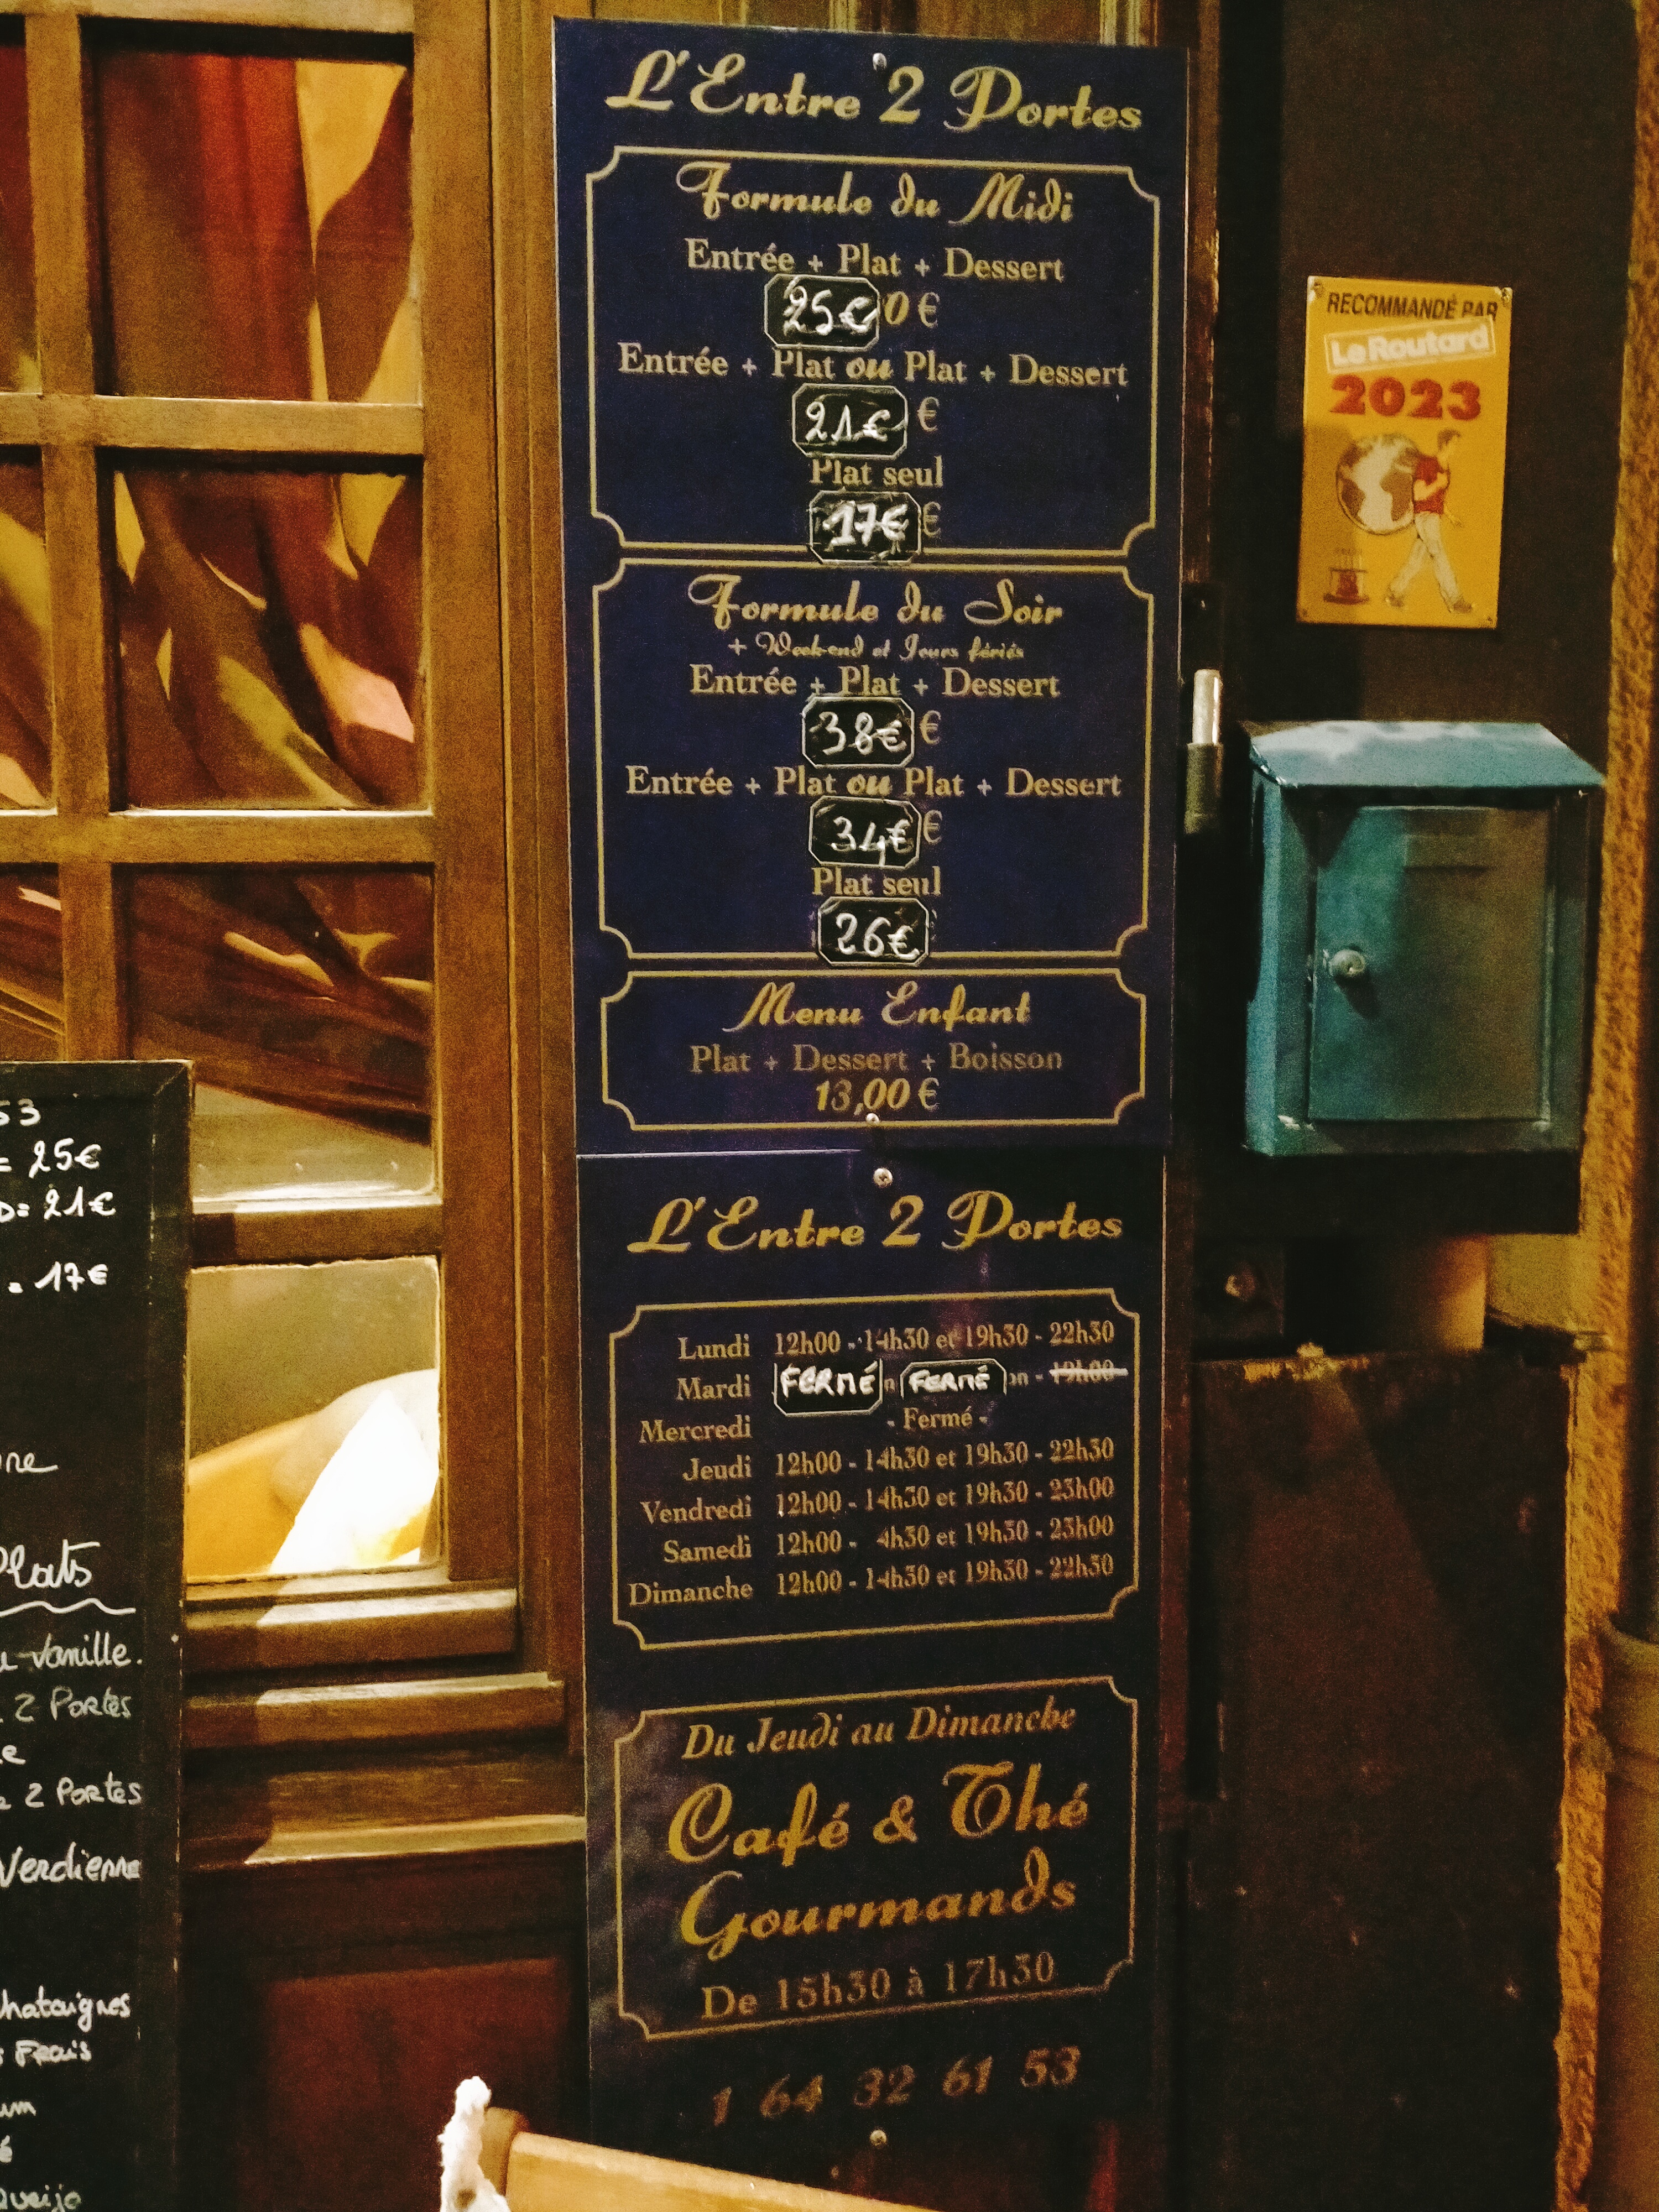 L'Entre 2 Portes
Formule du Midi
Entrée + Plat + Dessert
25€0 €
Entrée + Plat ou Plat + Dessert
21€ €
Plat seul
17€ €
Formule du Soir
+ Week-end et Jours fériés
Entrée + Plat + Dessert
38€ €
Entrée + Plat ou Plat + Dessert
34€ €
Plat seul
26€
Menu Enfant
Plat + Dessert + Boisson
13,00 €
L'Entre 2 Portes
Lundi 12h00 - 14h30 et 19h30 - 22h30
Mardi FERMÉ FERMÉ - 19h00
Mercredi - Fermé -
Jeudi 12h00 - 14h30 et 19h30 - 22h30
Vendredi 12h00 - 14h30 et 19h30 - 23h00
Samedi 12h00 - 4h30 et 19h30 - 23h00
Dimanche 12h00 - 14h30 et 19h30 - 22h30
Du Jeudi au Dimanche
Café & Thé
Gourmands
De 15h30 à 17h30
1 64 32 61 53
RECOMMANDÉ PAR
Le Routard
2023
53
= 25€
D= 21€
= 17€
Plats
vanille.
2 Portes
2 Portes
Verdienne
Chataignes
Frais
Queijo